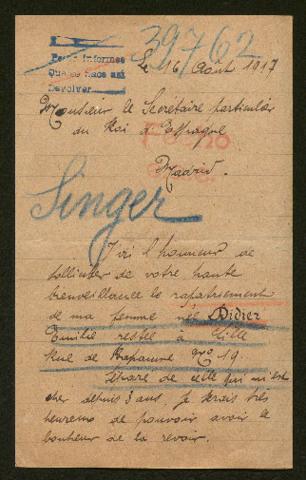 39762
Pedir informes
Que se hace así
Devolver
Le 16 Août 1917
Monsieur le Secrétaire particulier
du Roi d'Espagne
Madrid.
Singer
J'ai l'honneur de
solliciter de votre haute
bienveillance le rapatriement
de ma femme née Didier
Emilie restée à Lille
Rue de Bapaume nro 19
Séparé de celle qui m'est
cher depuis 3 ans, je serais très
heureux de pouvoir avoir le
bonheur de la revoir.